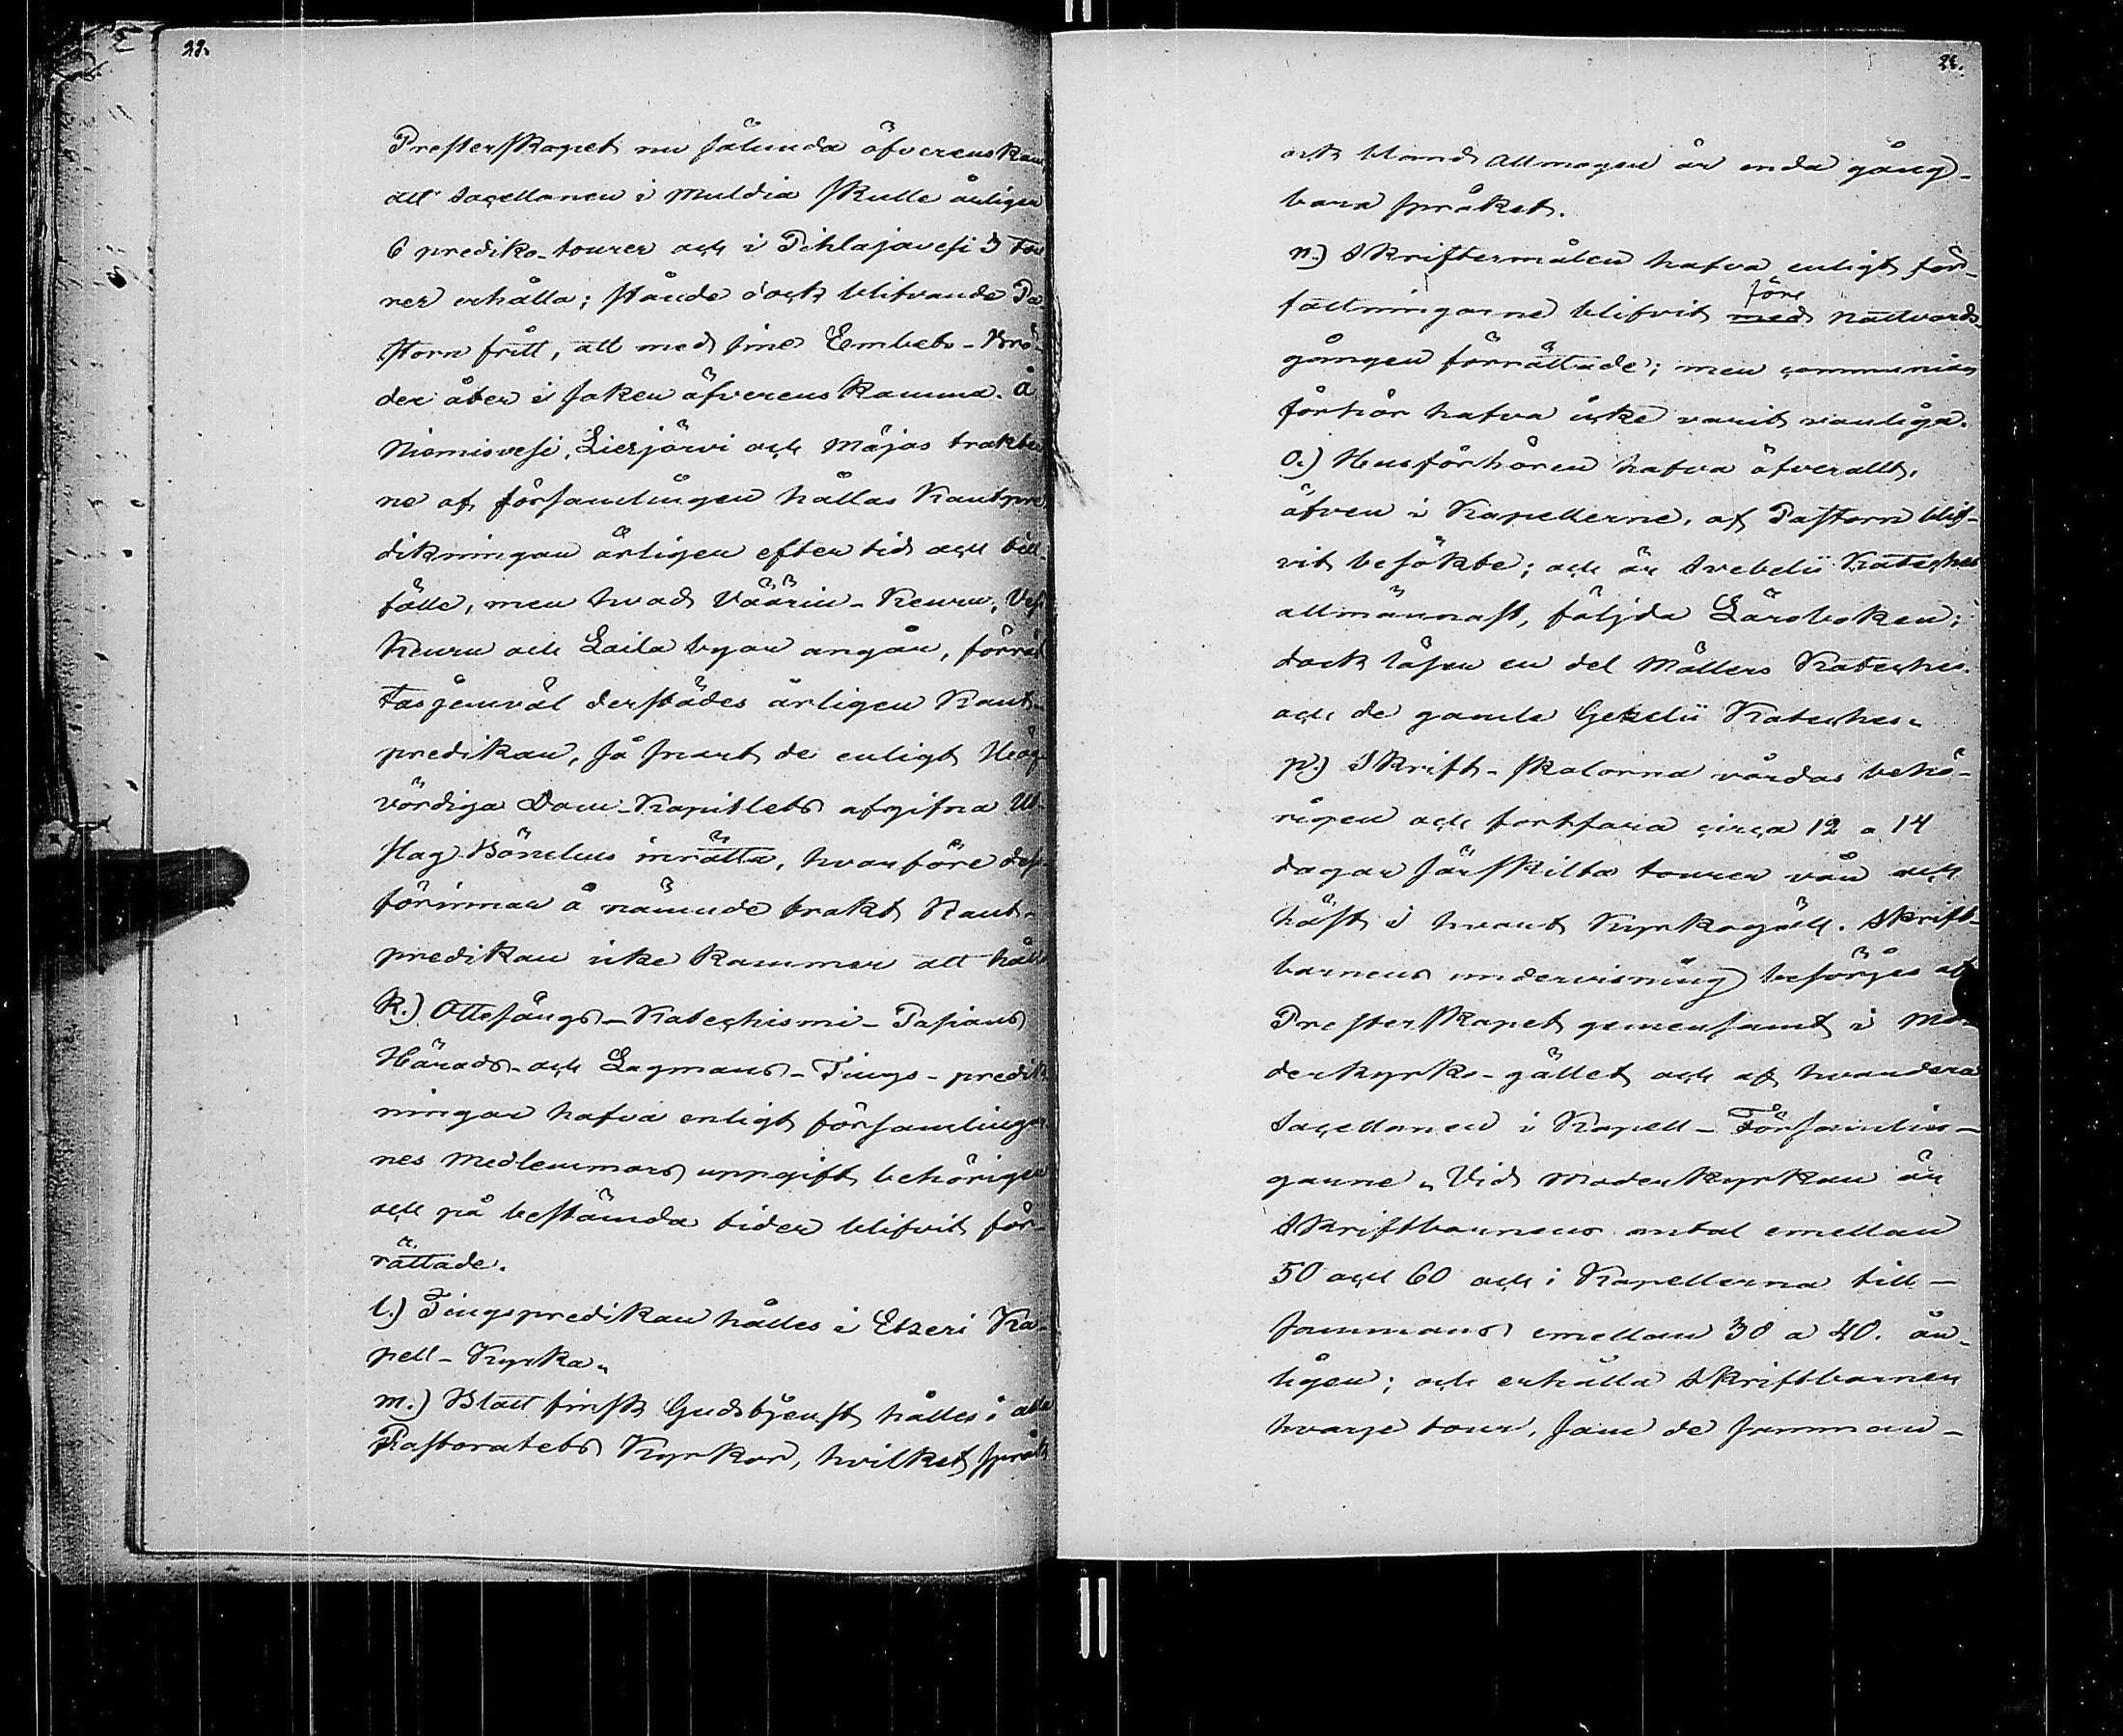 22.
Presterskapet nu sålunda öfverenskom,
att Sacellanen i Muldia skulle årligen
6 prediko-tourer och i Pihlajavesi 3 tou
rer erhålla; stånde dock blifvande Pa-
storn fritt, att med sine Eembets-Brö-
der åter i saken öfverenskomma. Å
Niemisvesi, Lierjärvi och Mäjas trakter
ne af församlingen hållas Kautpre
dikningar årligen efter tid och till-
fälle, men hvad Väärin-Keuru, Vest
Keuru och Laila byar angår, förrät
tas jemväl derstädes årligen Kaut-
predikan, så snart de enligt Hög-
vördiga Dom-Kapitlets afgifna Ut-
slag Bönehus inrätta, hvarföre dess-
förinnan å nämnde trakt Kaut-
predikan icke kommer att hålla
k.) Ottesångs-Katechismi-Passions
Härads- och Lagmans-Tings-predik
ningar hafva enligt församlingar
nes medlemmars uppgift behörigen
och på bestämda tider blifvit för-
rättade.
l.) Tingspredikan hålles i Etseri Ka-
pell-Kyrka.
m.) Blott finsk Gudstjenst hålles i alla
Pastoratets Kyrkor, hvilket språk
23.
ock bland Allmogen är enda gång-
bara språket.
n.) Skriftermålen hafva enligt för-
före
fattningarne blifvit med nattvards-
gången förrättade; men communion
förhör hafva icke varit vanliga.
o.) Husförhören hafva öfverallt,
äfven i Kapellerne, af Pastorn blif-
vit besökte; och är Svebelii Kateches
allmännast, följda Läroboken;
dock läsen en del Möllers Kateches
och de gamle Gezelii Kateches.
p.) Skrift-skolorna vårdas behö-
rigen och fortfara circa 12 a 14
dagar särskilta tourer vår och
höst i hvart Kyrkogäll. Skrift-
barnens undervisning besörjes af
Presterskapet gemensamt i Mo-
derkyrko-gället och af hvardera
Sacellanen i Kapell-Församlin-
garne. Vid Moderkyrkan är
Skriftbarnens antal emellan
50 och 60 och i Kapellerna till-
sammans emellan 30 a 40. år-
ligen; och erhålla Skriftbarnen
hvarje tour, som de samman-